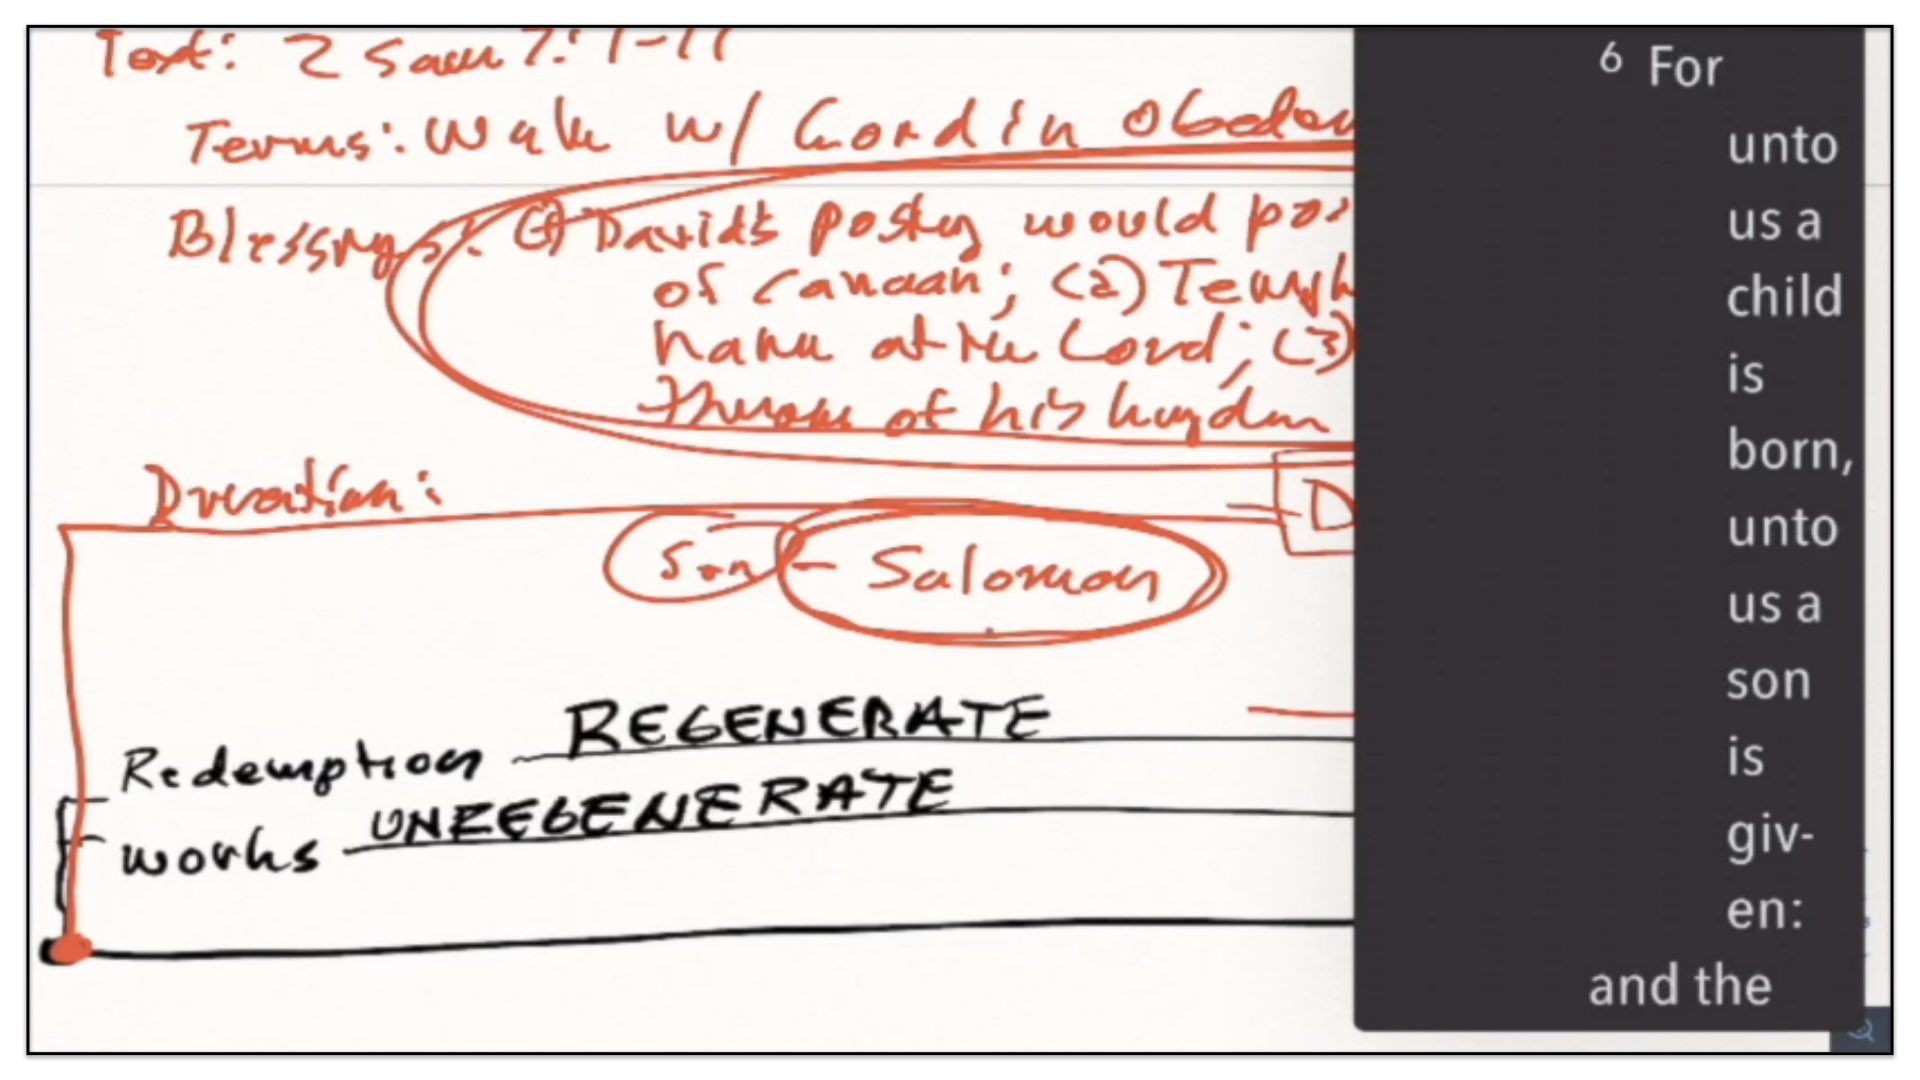 Text: 2 Sam 7:1-17
Terms: Walk w/ Lord in Obedien
Blessings: (1) David's postery would pos
of Canaan; (2) Temple
name at the Lord; (3)
throne of his kingdom
Duration:
D
Son - Solomon
Redemption REGENERATE
works UNREGENERATE
6 For
unto
us a
child
is
born,
unto
us a
son
is
giv-
en:
and the